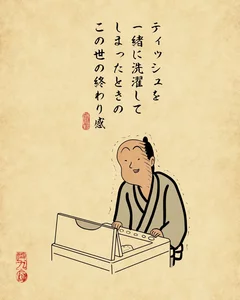 ティッシュを
一緒に洗濯して
しまったときの
この世の終わり感